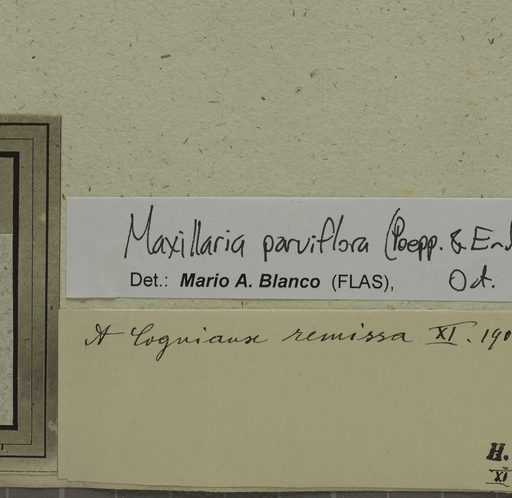 Maxillaria parviflora (Poepp. & End
Det.: Mario A. Blanco (FLAS), Oct.
A Cogniaux remissa XI. 190
H.
XI